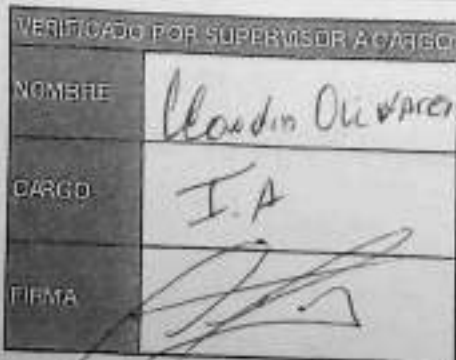 VERIFICADO POR SUPERVISOR A CARGO
NOMBRE Claudio Olivares
CARGO I.A
FIRMA